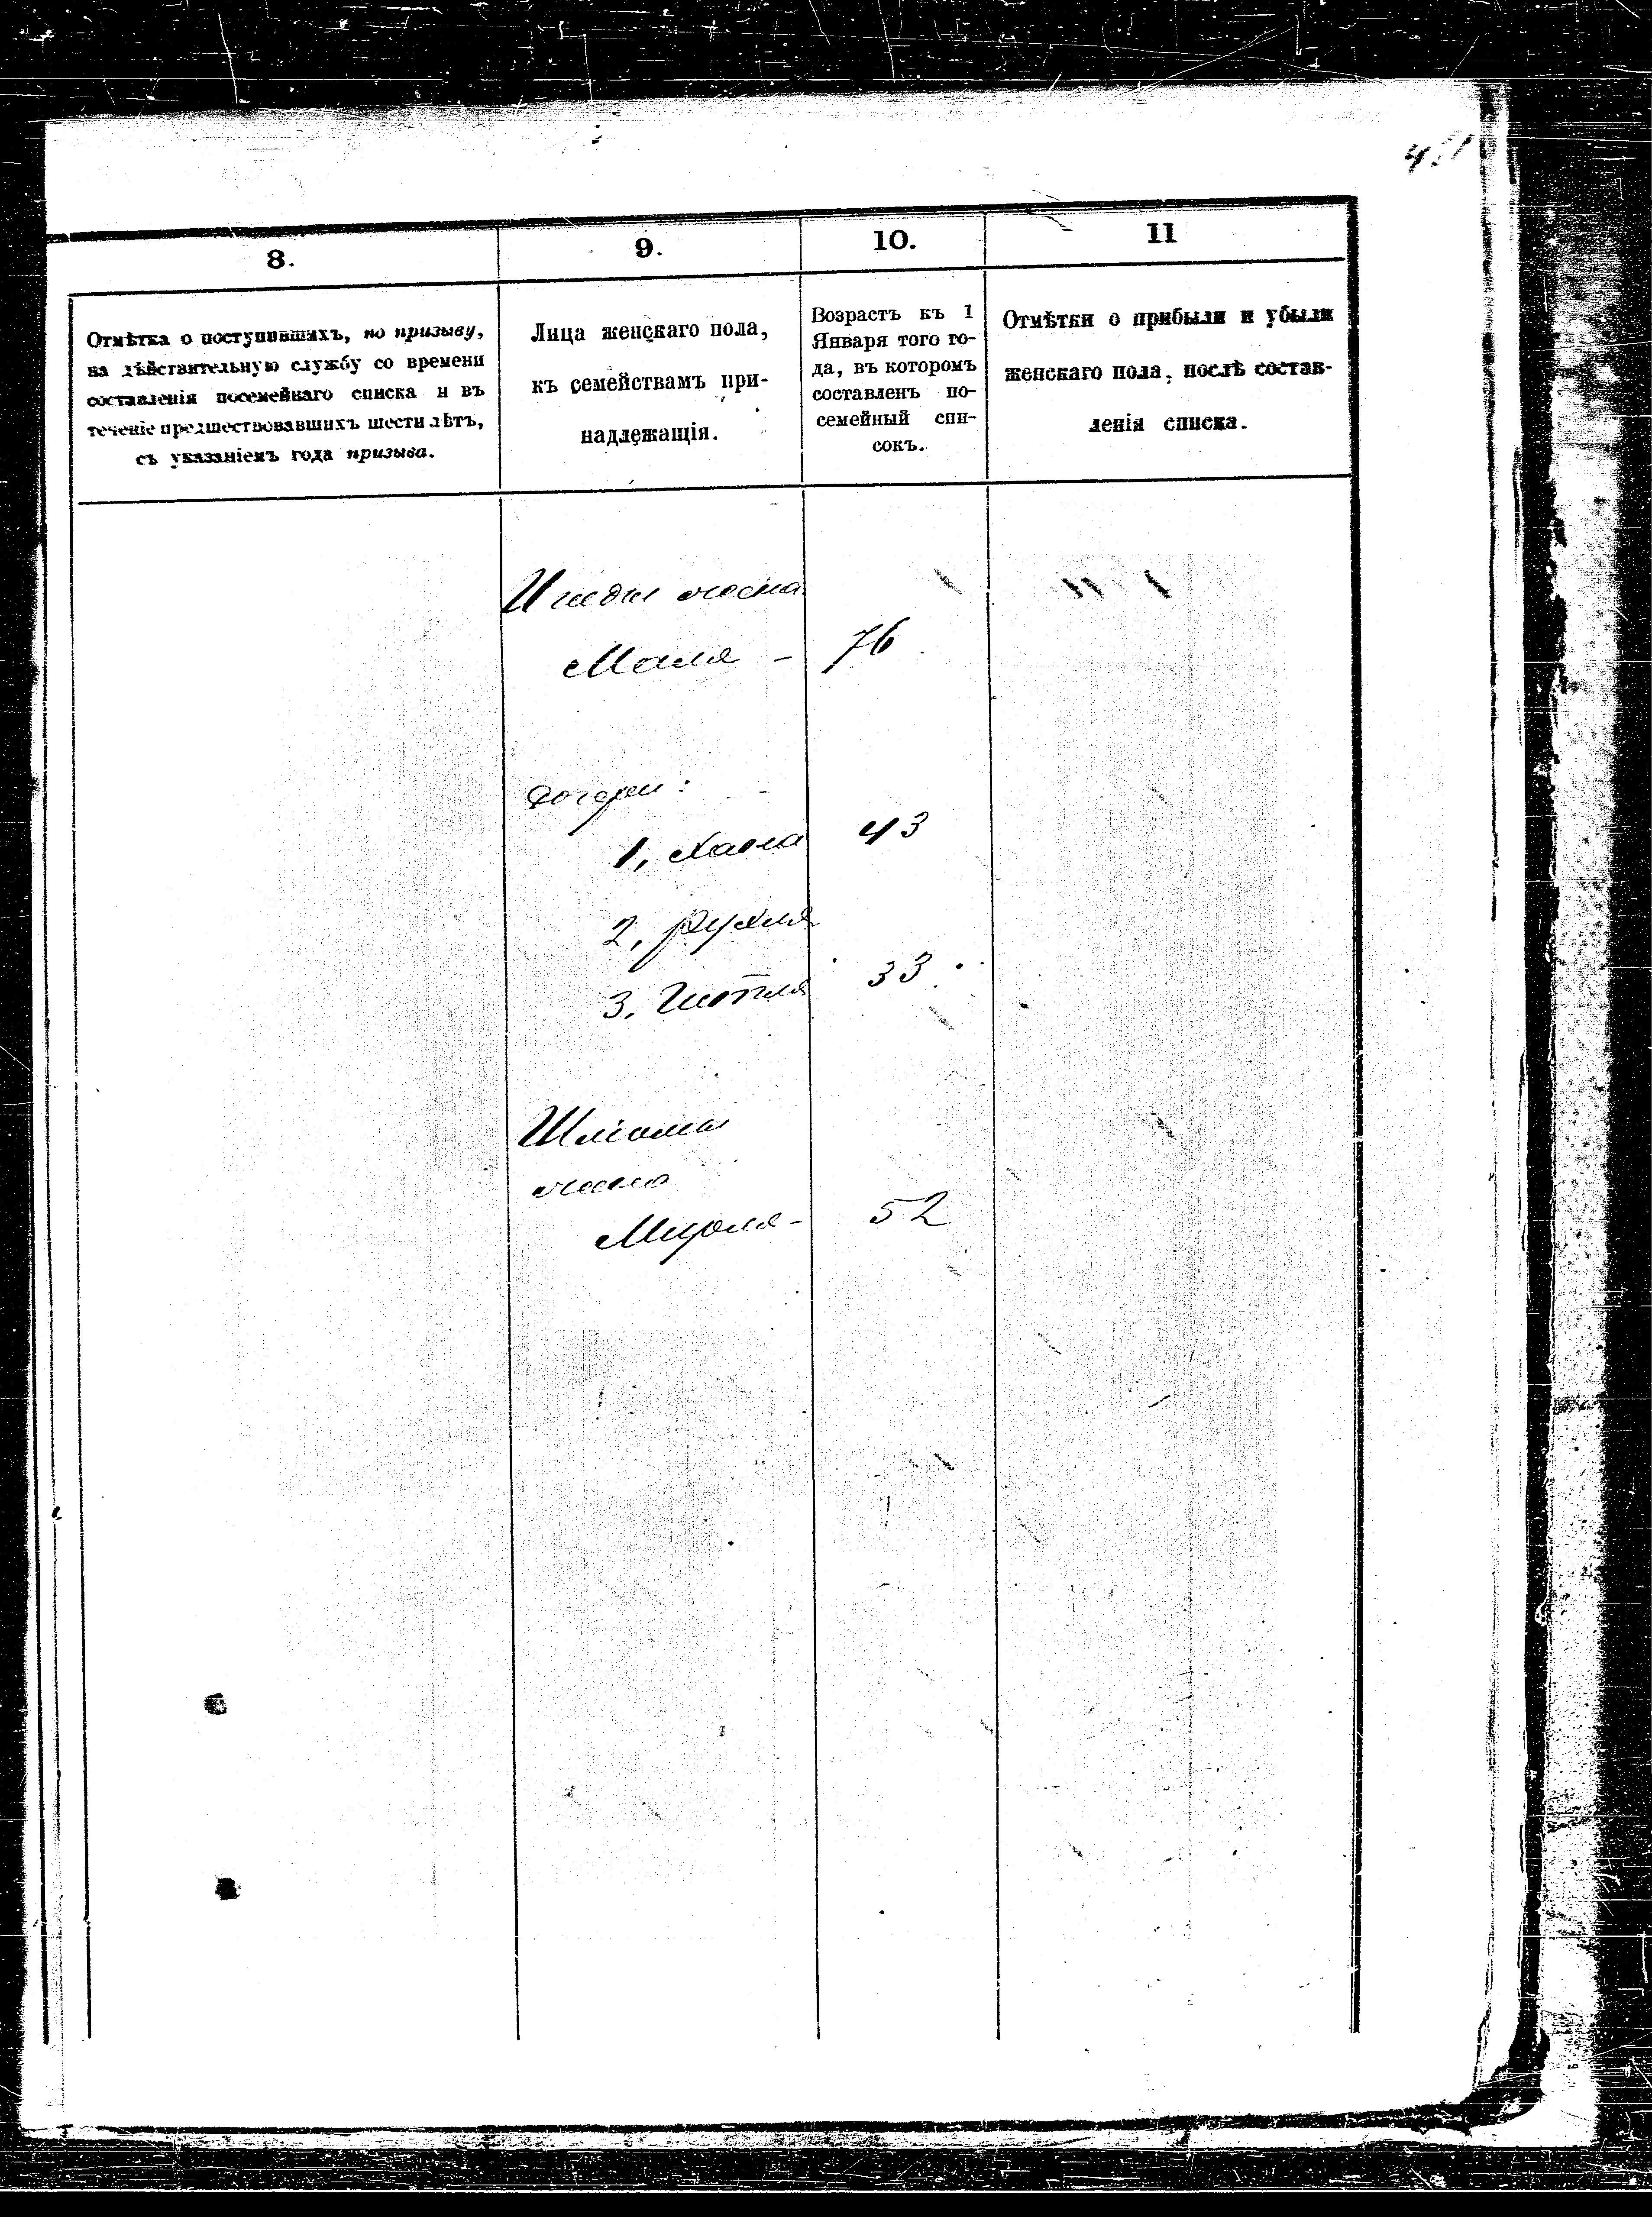 451
8.
9.
10.
11
Отмѣтка о поступившихъ, по призыву,
на дѣйствительную службу со времени
составленія посемейнаго списка и въ
теченіе предшествовавшихъ шести лѣтъ,
съ указаніемъ года призыва.
Лица женскаго пола,
къ семействамъ при-
надлежащія.
Возрастъ къ 1
Января того го-
да, въ которомъ
составленъ по-
семейный спи-
сокъ.
Отмѣтки о прибыли и убыли
женскаго пола, послѣ состав-
ленія списка.
жена
Маля - 76
Дочери:
1, Хана 43
2, Рухля
3, Гитля 33
Шліомы
жена
Мирля - 52